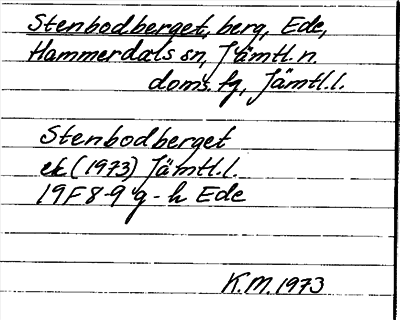 Stenbodberget, berg, Ede,
Hammerdals sn, Jämtl. n.
doms. fg, Jämtl. l.
Stenbodberget
ek (1973) Jämtl. l.
19F 8-9 g-h Ede
K.M. 1973